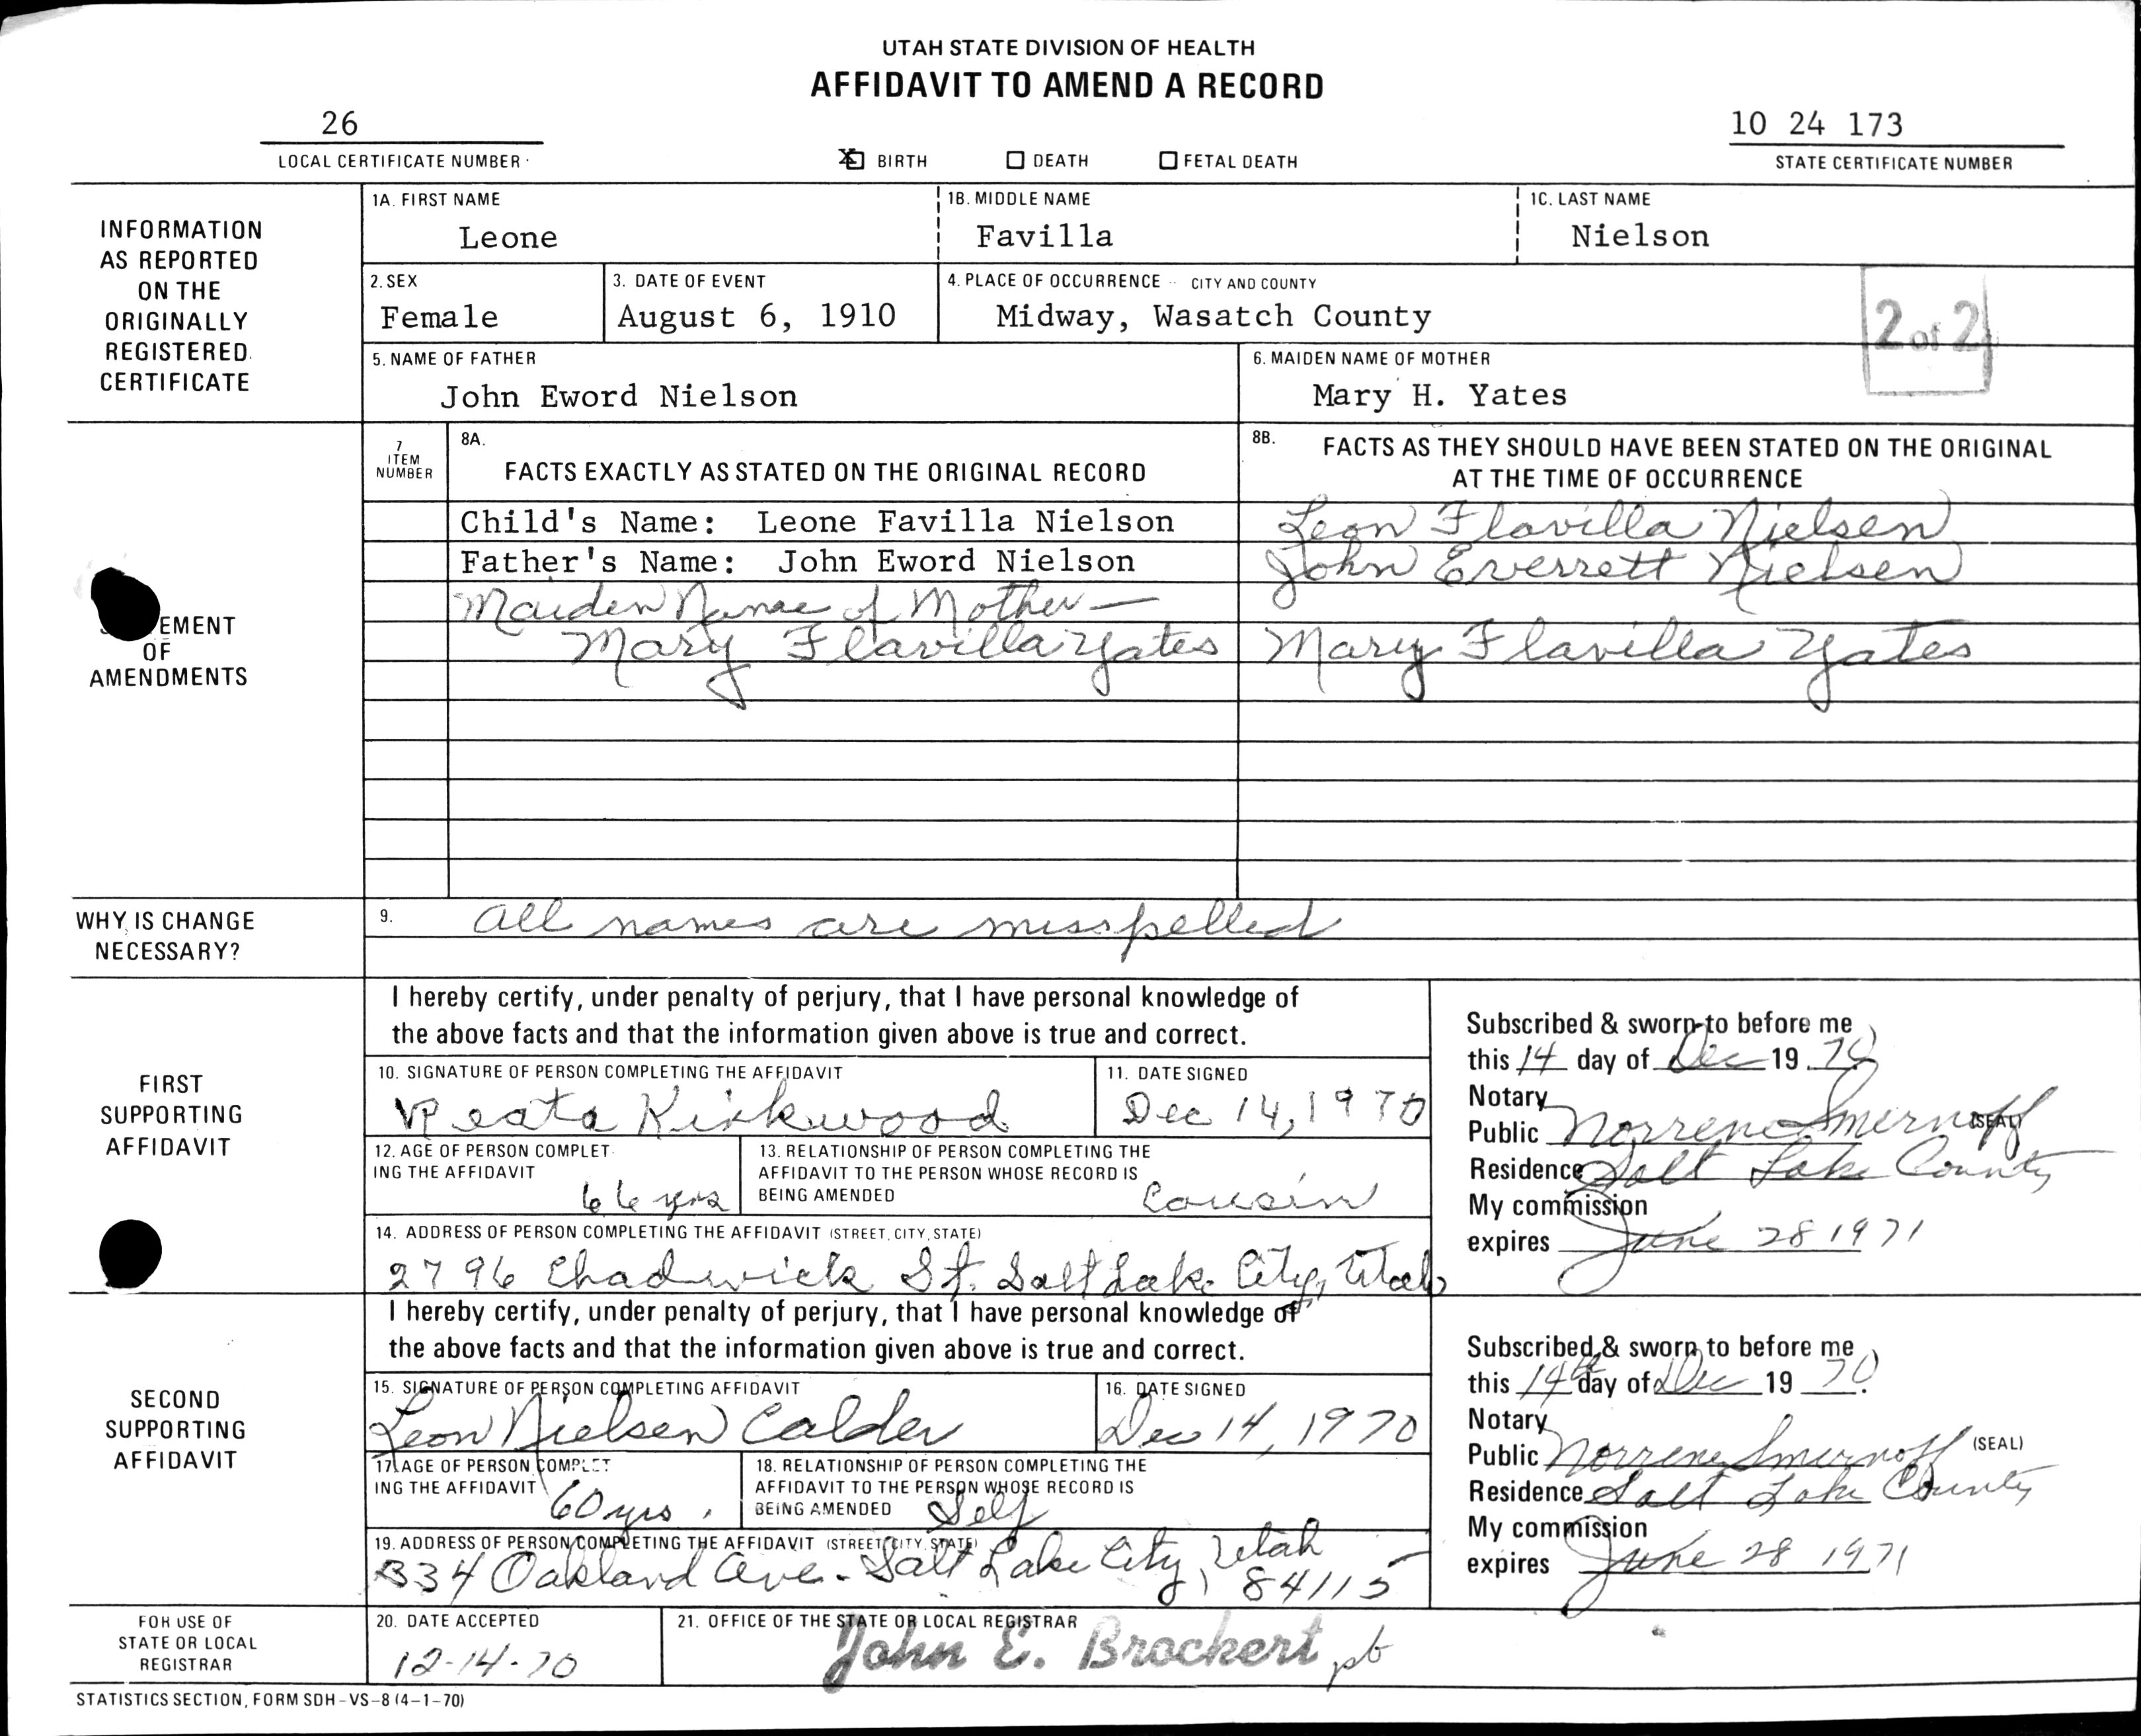 UTAH STATE DIVISION OF HEALTH
AFFIDAVIT TO AMEND A RECORD
26
LOCAL CERTIFICATE NUMBER
X BIRTH DEATH FETAL DEATH
10 24 173
STATE CERTIFICATE NUMBER
INFORMATION
AS REPORTED
ON THE
ORIGINALLY
REGISTERED
CERTIFICATE
1A. FIRST NAME
Leone
1B. MIDDLE NAME
Favilla
1C. LAST NAME
Nielson
2. SEX
Female
3. DATE OF EVENT
August 6, 1910
4. PLACE OF OCCURRENCE - CITY AND COUNTY
Midway, Wasatch County
2 of 2
5. NAME OF FATHER
John Eword Nielson
6. MAIDEN NAME OF MOTHER
Mary H. Yates
EMENT
OF
AMENDMENTS
7
ITEM
NUMBER
8A.
FACTS EXACTLY AS STATED ON THE ORIGINAL RECORD
8B. FACTS AS THEY SHOULD HAVE BEEN STATED ON THE ORIGINAL
AT THE TIME OF OCCURRENCE
Child's Name: Leone Favilla Nielson
Leon Flavilla Nielsen
Father's Name: John Eword Nielson
John Everrett Nielsen
Maiden Name of Mother —
Mary Flavilla Yates
Mary Flavilla Yates
WHY IS CHANGE
NECESSARY?
9. all names are misspelled
FIRST
SUPPORTING
AFFIDAVIT
I hereby certify, under penalty of perjury, that I have personal knowledge of
the above facts and that the information given above is true and correct.
10. SIGNATURE OF PERSON COMPLETING THE AFFIDAVIT
Reata Kirkwood
11. DATE SIGNED
Dec 14, 1970
12. AGE OF PERSON COMPLET-
ING THE AFFIDAVIT
66 yrs
13. RELATIONSHIP OF PERSON COMPLETING THE
AFFIDAVIT TO THE PERSON WHOSE RECORD IS
BEING AMENDED
Cousin
14. ADDRESS OF PERSON COMPLETING THE AFFIDAVIT (STREET, CITY, STATE)
2796 Chadwick St. Salt Lake City, Utah
Subscribed & sworn to before me
this 14 day of Dec 19 70
Notary
Public Norrene Smernoff (SEAL)
Residence Salt Lake County
My commission
expires June 28 1971
SECOND
SUPPORTING
AFFIDAVIT
I hereby certify, under penalty of perjury, that I have personal knowledge of
the above facts and that the information given above is true and correct.
15. SIGNATURE OF PERSON COMPLETING AFFIDAVIT
Leon Nielsen Calder
16. DATE SIGNED
Dec 14, 1970
17. AGE OF PERSON COMPLET
ING THE AFFIDAVIT
60 yrs.
18. RELATIONSHIP OF PERSON COMPLETING THE
AFFIDAVIT TO THE PERSON WHOSE RECORD IS
BEING AMENDED
Self
19. ADDRESS OF PERSON COMPLETING THE AFFIDAVIT (STREET, CITY, STATE)
334 Oakland Ave. - Salt Lake City, Utah
84115
Subscribed & sworn to before me
this 14th day of Dec 19 70.
Notary
Public Norrene Smernoff (SEAL)
Residence Salt Lake County
My commission
expires June 28 1971
FOR USE OF
STATE OR LOCAL
REGISTRAR
20. DATE ACCEPTED
12-14-70
21. OFFICE OF THE STATE OR LOCAL REGISTRAR
John E. Brockert pb
STATISTICS SECTION, FORM SDH-VS-8 (4-1-70)